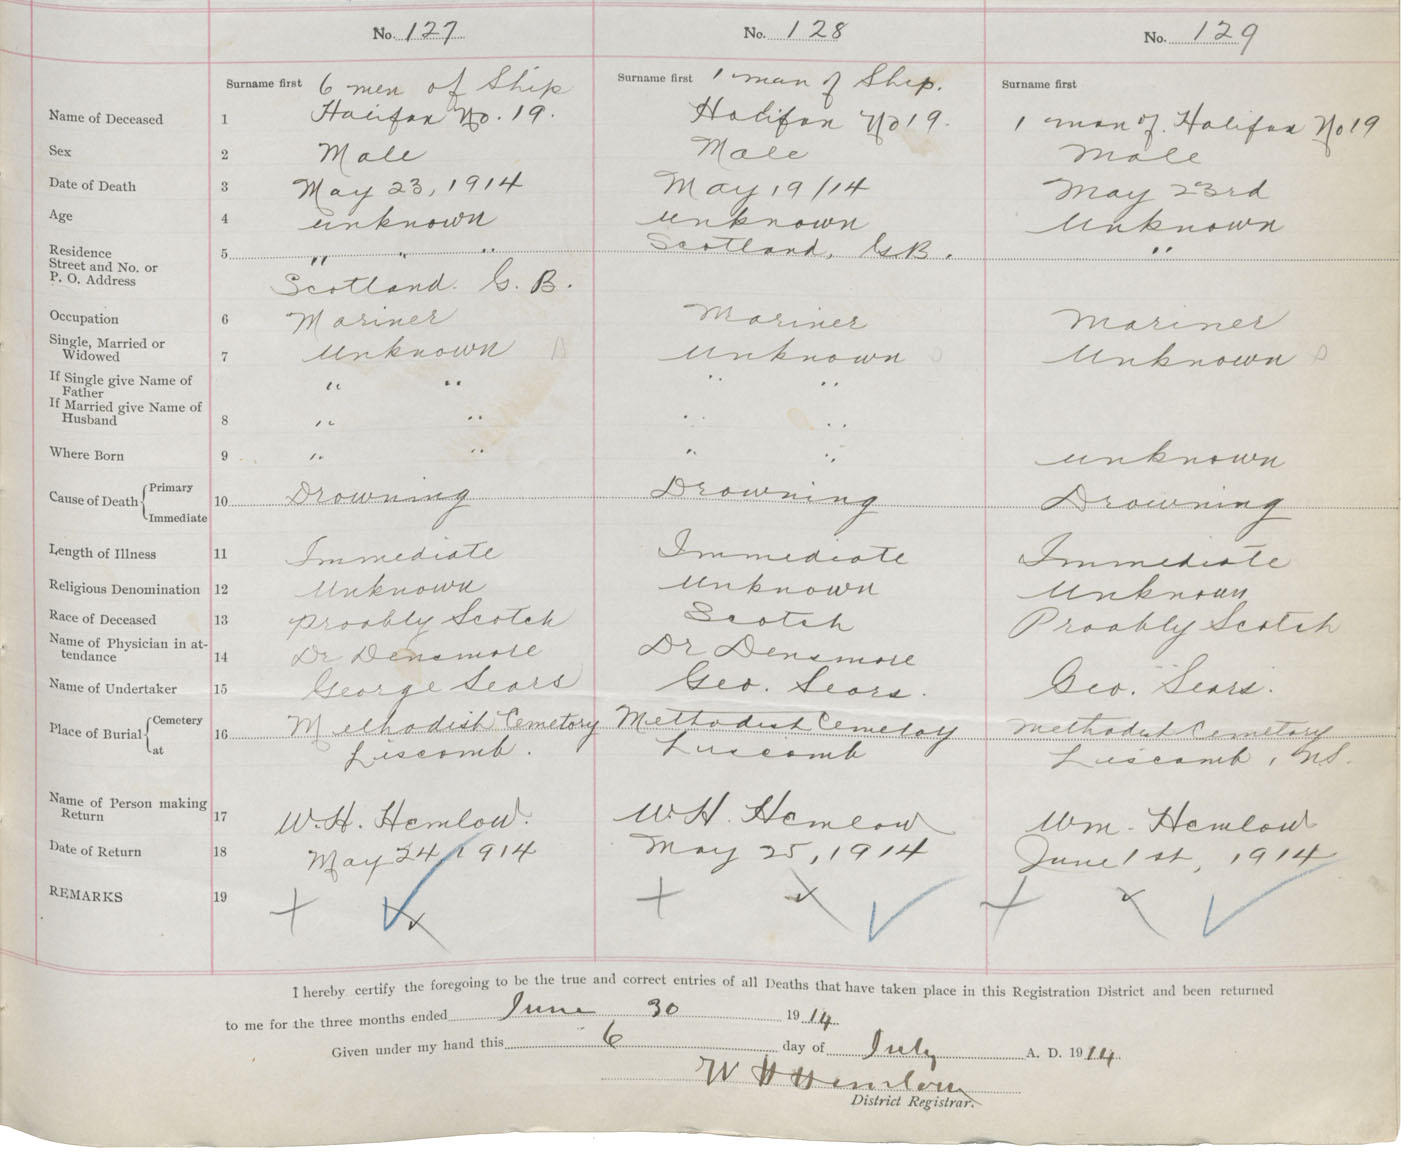 No. 127 No. 128 No. 129
Surname first 6 men of Ship Surname first 1 man of Ship. Surname first
Name of Deceased 1 Halifax No. 19. Halifax No 19. 1 man of. Halifax No 19
Sex 2 Male Male Male
Date of Death 3 May 23, 1914 May 19/14 May 23rd
Age 4 unknown unknown Unknown
Residence
Street and No. or
P. O. Address 5 " " " Scotland, G.B. "
Scotland. G. B.
Occupation 6 Mariner Mariner Mariner
Single, Married or
Widowed 7 Unknown Unknown Unknown
If Single give Name of
Father " " " "
If Married give Name of
Husband 8 " " " "
Where Born 9 " " " " unknown
Cause of Death Primary
Immediate 10 Drowning Drowning Drowning
Length of Illness 11 Immediate Immediate Immediate
Religious Denomination 12 Unknown Unknown Unknown
Race of Deceased 13 proobly Scotch Scotch Proobly Scotch
Name of Physician in at-
tendance 14 Dr Densmore Dr Densmore
Name of Undertaker 15 George Sears Geo. Sears. Geo. Sears.
Place of Burial Cemetery
at 16 Methodish Cemetory Methodist Cemetoy Methodist Cemetory
Liscomb. Liscomb Liscomb, N.S.
Name of Person making
Return 17 W. H. Hemlow. W. H. Hemlow Wm. Hemlow
Date of Return 18 May 24, 1914 May 25, 1914 June 1st, 1914
REMARKS 19
I hereby certify the foregoing to be the true and correct entries of all Deaths that have taken place in this Registration District and been returned
to me for the three months ended June 30 1914
Given under my hand this 6 day of July A. D. 1914
W H Hemlow
District Registrar.